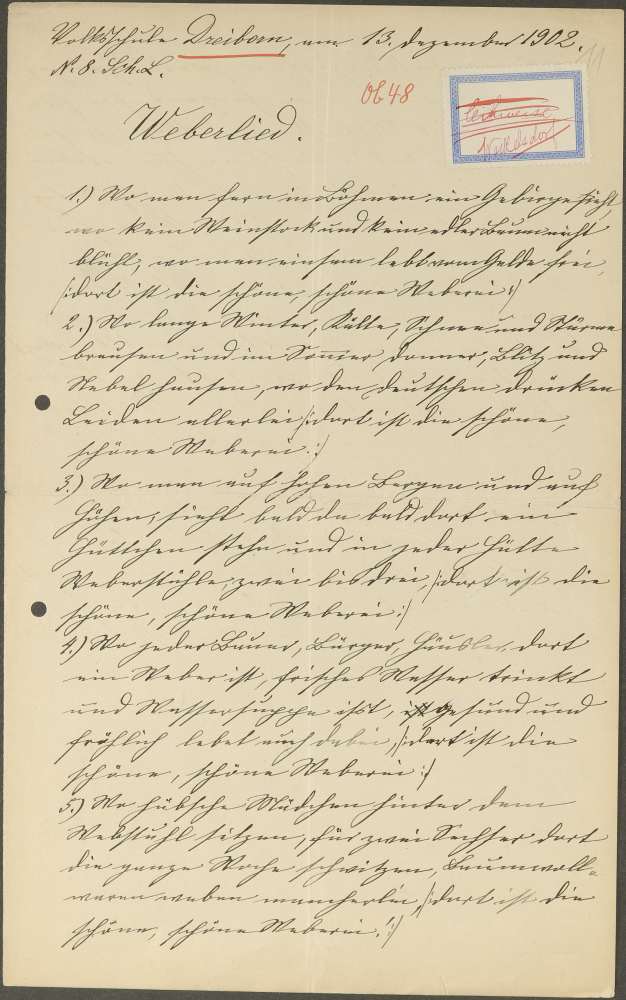 Volksschule Dreiborn, am 13. Dezember 1902.
N. 8. Sch. L.
Ob 48
Weberlied.
1.) Wo man fern in Böhmen ein Gebirge sieht,
wo kein Weinstock und kein edler Baum nicht
blüht, wo man einsam lebt vom Gelde frei,
/:dort ist die schöne, schöne Weberei:/
2.) Wo lange Winter, Kälte, Schnee und Stürme
brausen und im Sommer Donner, Blitz und
Nebel hausen, wo den Deutschen drücken
Leiden allerlei /:dort ist die schöne,
schöne Weberei:/
3.) Wo man auf hohen Bergen und auf
Höhen, sieht bald da bald dort ein
Hüttchen stehn und in jeder Hütte
Weberstühle, zwei bis drei, /:dort ist die
schöne, schöne Weberei:/
4.) Wo jeder Bauer, Bürger, Häusler dort
ein Weber ist, frisches Wasser trinkt
und Wassersuppe isst, gesund und
fröhlich lebet auch dabei, /:dort ist die
schöne, schöne Weberei:/
5.) Wo hübsche Mädchen hinter dem
Webstuhl sitzen, für zwei Sechser dort
die ganze Woche schwitzen, Baumwoll-
waren weben mancherlei, /:dort ist die
schöne, schöne Weberei!:/